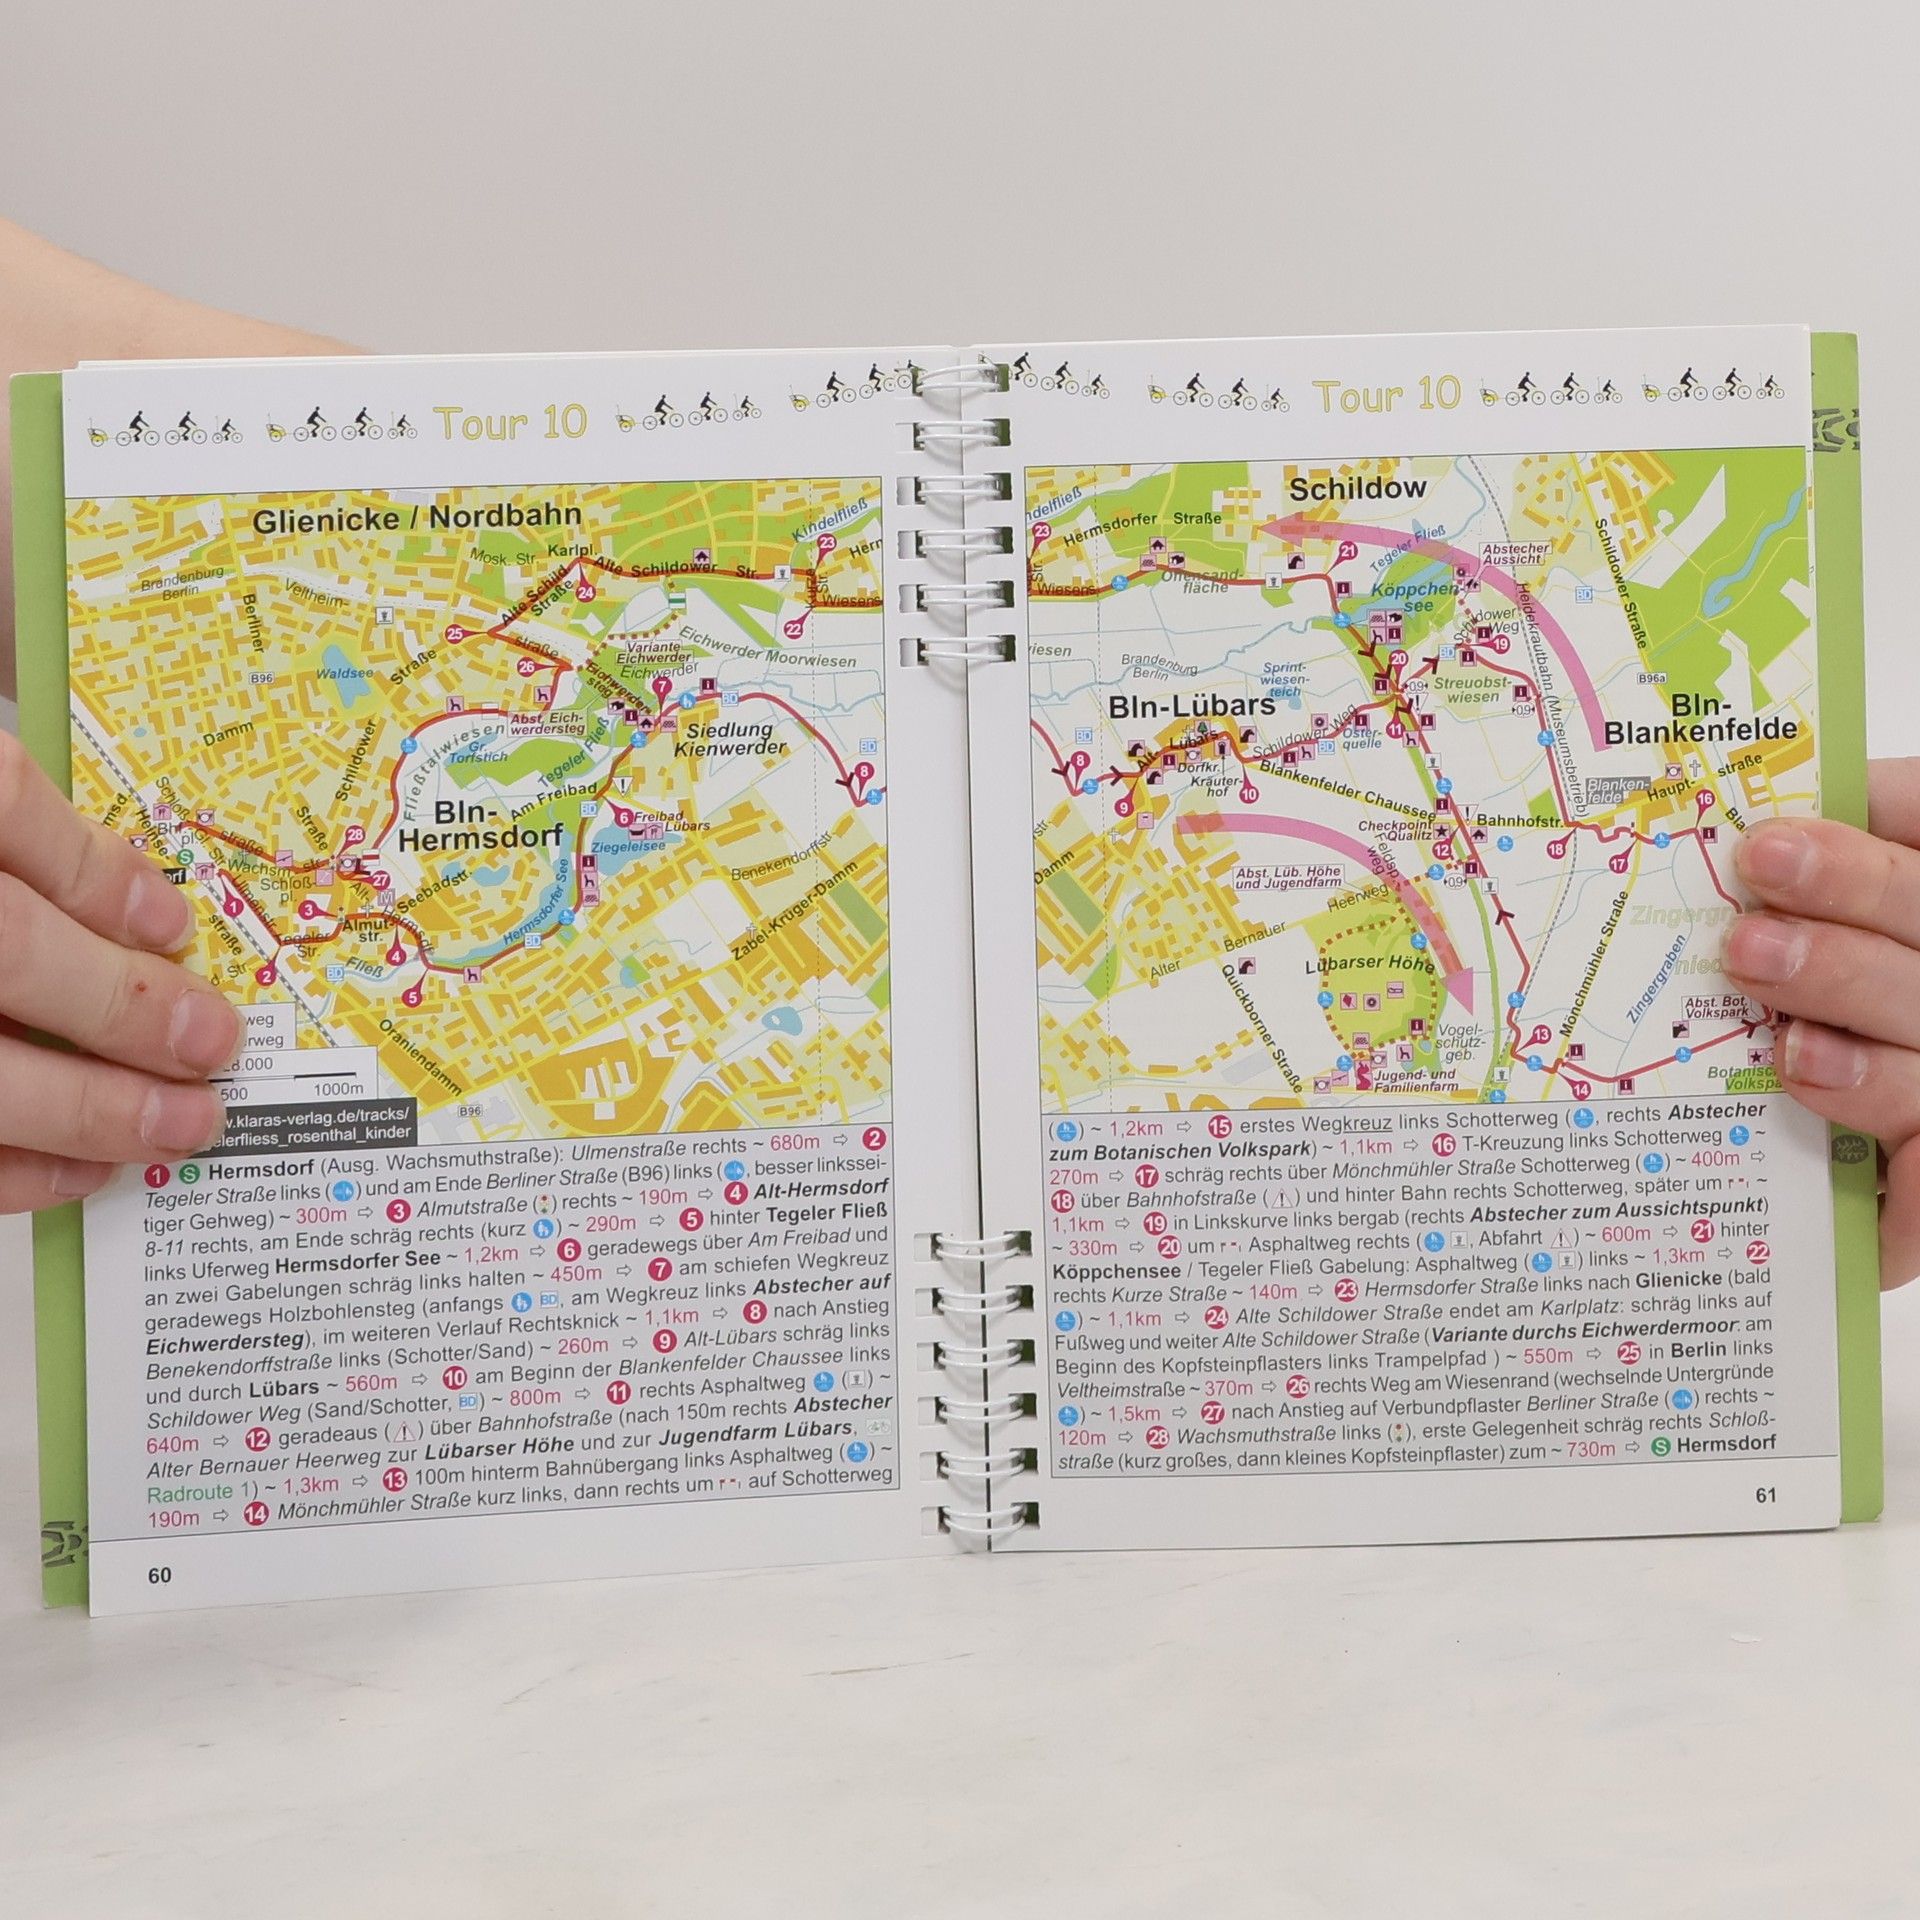 Tour 10
Glienicke / Nordbahn
Mosk. Str.
Karlpl.
Alte Schildower Str.
Kindelfließ
23
Brandenburg
Berlin
Veltheim-
Berliner
Alte Schild
Straße
24
22
Wiesens
25
straße
26
Variante
Eichwerder
Eichwerder
Eichwerder Moorwiesen
Waldsee
Straße
B96
Damm
Schildower
Fließtalwiesen
Gr.
Torfstich
Abst. Eich-
werdersteg
Tegeler Fließ
7
BD
Siedlung
Kienwerder
BD
8
Bln-
Hermsdorf
Am Freibad
BD
6
Freibad
Lübars
Ziegeleisee
Benekendorffstr.
Straße
28
27
Wachsm.
Schloß-
pl.
1
3
Almut-
str.
Seebadstr.
Hermsdorfer See
BD
Tegeler
Str.
4
2
BD
Fließ
5
Zabel-Krüger-Damm
Oraniendamm
B96
500
1000m
klaras-verlag.de/tracks/
elerfliess_rosenthal_kinder
1 S Hermsdorf (Ausg. Wachsmuthstraße): Ulmenstraße rechts ~ 680m ⇨ 2
Tegeler Straße links ( ) und am Ende Berliner Straße (B96) links ( , besser linkssei-
tiger Gehweg) ~ 300m ⇨ 3 Almutstraße ( ) rechts ~ 190m ⇨ 4 Alt-Hermsdorf
8-11 rechts, am Ende schräg rechts (kurz ) ~ 290m ⇨ 5 hinter Tegeler Fließ
links Uferweg Hermsdorfer See ~ 1,2km ⇨ 6 geradewegs über Am Freibad und
an zwei Gabelungen schräg links halten ~ 450m ⇨ 7 am schiefen Wegkreuz
geradewegs Holzbohlensteg (anfangs BD, am Wegkreuz links Abstecher auf
Eichwerdersteg), im weiteren Verlauf Rechtsknick ~ 1,1km ⇨ 8 nach Anstieg
Benekendorffstraße links (Schotter/Sand) ~ 260m ⇨ 9 Alt-Lübars schräg links
und durch Lübars ~ 560m ⇨ 10 am Beginn der Blankenfelder Chaussee links
Schildower Weg (Sand/Schotter, BD) ~ 800m ⇨ 11 rechts Asphaltweg ( ) ~
640m ⇨ 12 geradeaus ( ) über Bahnhofstraße (nach 150m rechts Abstecher
Alter Bernauer Heerweg zur Lübarser Höhe und zur Jugendfarm Lübars,
Radroute 1) ~ 1,3km ⇨ 13 100m hinterm Bahnübergang links Asphaltweg ( ) ~
190m ⇨ 14 Mönchmühler Straße kurz links, dann rechts um auf Schotterweg
60
Tour 10
Schildow
23
Hermsdorfer Straße
21
Tegeler Fließ
Abstecher
Aussicht
Wiesens
Köppchen-
see
BD
Schildower
Weg
19
Heidekrautbahn (Museumsbetrieb)
Schildower Straße
Brandenburg
Berlin
Sprint-
wiesen-
teich
20
BD
0,9
Streuobst-
wiesen
0,9
B96a
Bln-Lübars
Bln-
Blankenfelde
BD
8
9
Alt-
Lübars
Dorfkr.
Kräuter-
hof
10
Schildower Weg
BD
Oster-
quelle
11
Blankenfelder Chaussee
Blanken-
felde
Haupt-
straße
16
Bahnhofstr.
Checkpoint
Qualitz
12
18
17
0,9
Abst. Lüb. Höhe
und Jugendfarm
Heerweg
Bernauer
Alter
Damm
Lübarser Höhe
Quickborner Straße
Mönchmühler Straße
Zingergraben
Abst. Bot.
Volkspark
13
14
Vogel-
schutz-
geb.
Jugend- und
Familienfarm
( ) ~ 1,2km ⇨ 15 erstes Wegkreuz links Schotterweg ( , rechts Abstecher
zum Botanischen Volkspark) ~ 1,1km ⇨ 16 T-Kreuzung links Schotterweg ~
270m ⇨ 17 schräg rechts über Mönchmühler Straße Schotterweg ( ) ~ 400m ⇨
18 über Bahnhofstraße ( ) und hinter Bahn rechts Schotterweg, später um ~
1,1km ⇨ 19 in Linkskurve links bergab (rechts Abstecher zum Aussichtspunkt)
~ 330m ⇨ 20 um Asphaltweg rechts ( , Abfahrt ) ~ 600m ⇨ 21 hinter
Köppchensee / Tegeler Fließ Gabelung: Asphaltweg ( ) links ~ 1,3km ⇨ 22
rechts Kurze Straße ~ 140m ⇨ 23 Hermsdorfer Straße links nach Glienicke (bald
( ) ~ 1,1km ⇨ 24 Alte Schildower Straße endet am Karlplatz: schräg links auf
Fußweg und weiter Alte Schildower Straße (Variante durchs Eichwerdermoor: am
Beginn des Kopfsteinpflasters links Trampelpfad ) ~ 550m ⇨ 25 in Berlin links
Veltheimstraße ~ 370m ⇨ 26 rechts Weg am Wiesenrand (wechselnde Untergründe
) ~ 1,5km ⇨ 27 nach Anstieg auf Verbundpflaster Berliner Straße ( ) rechts ~
120m ⇨ 28 Wachsmuthstraße links ( ), erste Gelegenheit schräg rechts Schloß-
straße (kurz großes, dann kleines Kopfsteinpflaster) zum ~ 730m ⇨ S Hermsdorf
61